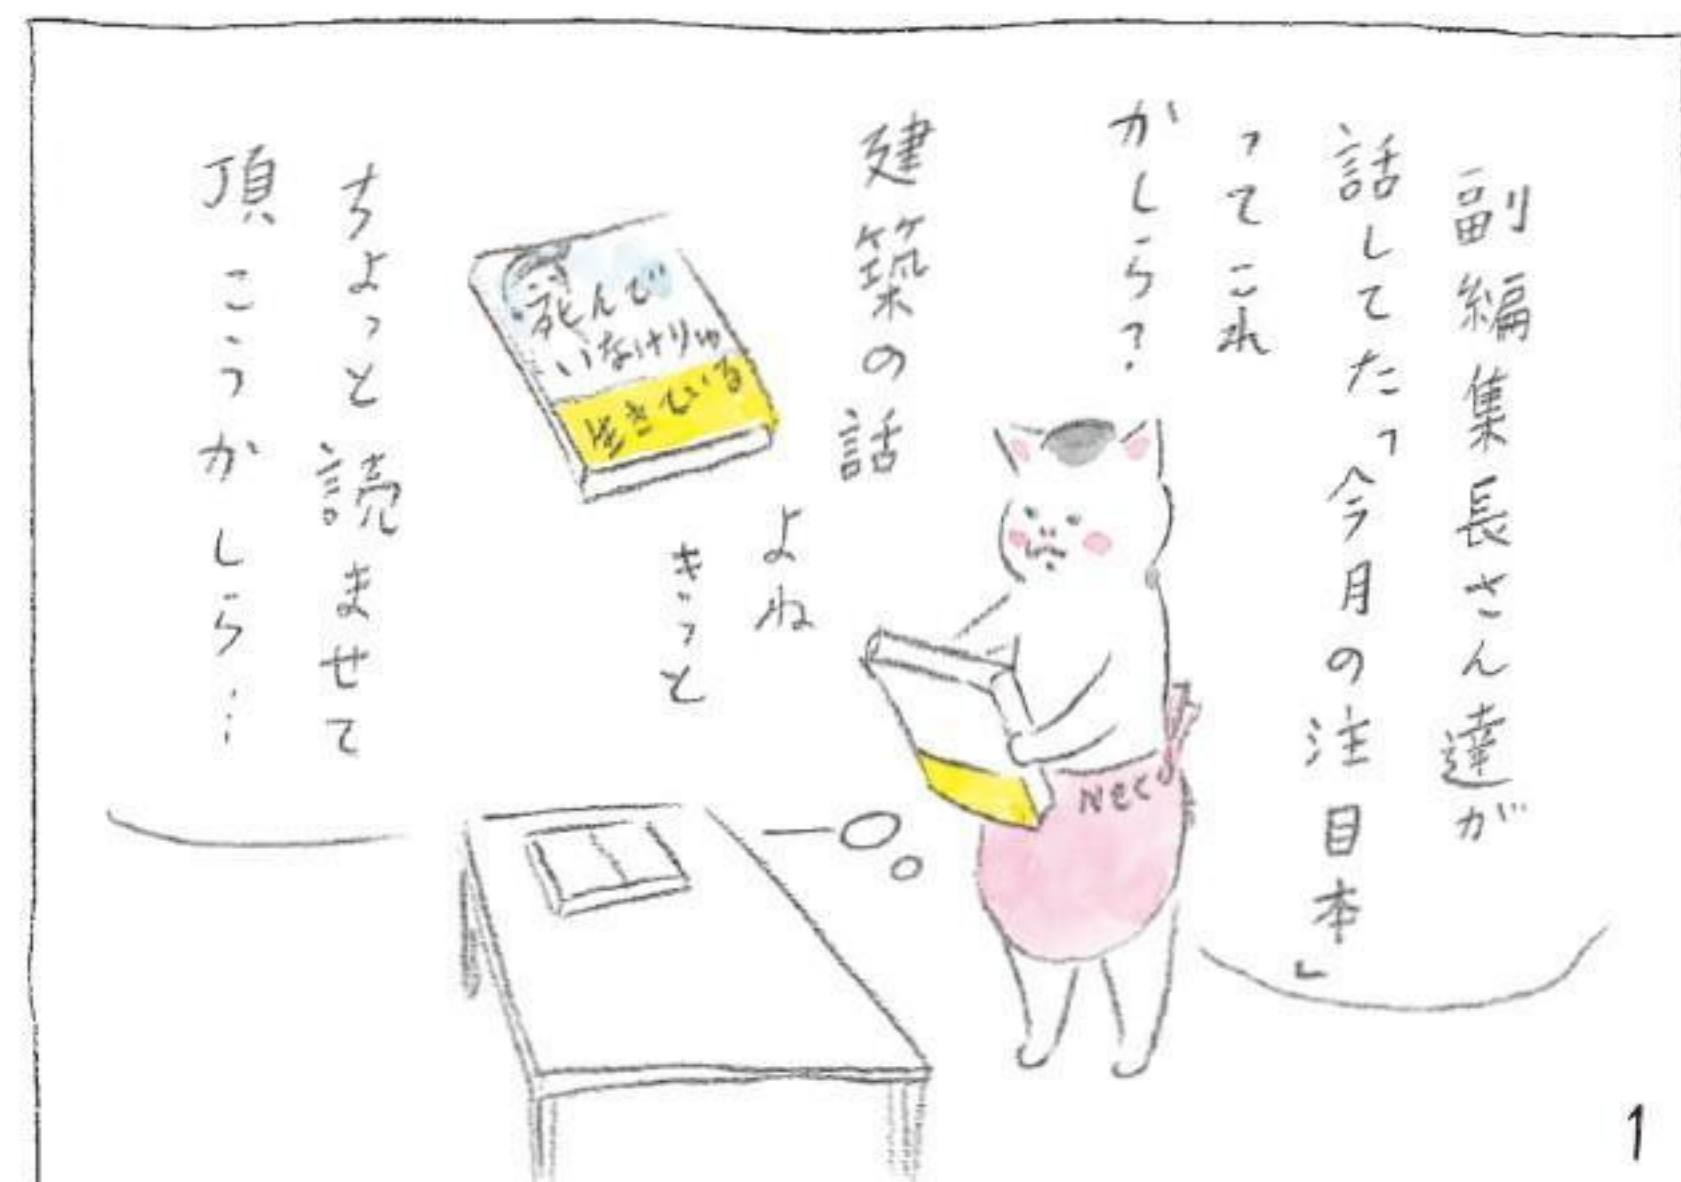 副編集長さん達が
話してた「今月の注目本」
ってこれ
かしら?
建築の話
よね
きっと
死んで
いなけりゅ
生きている
ちょっと読ませて
頂こうかしら…
Neco
1